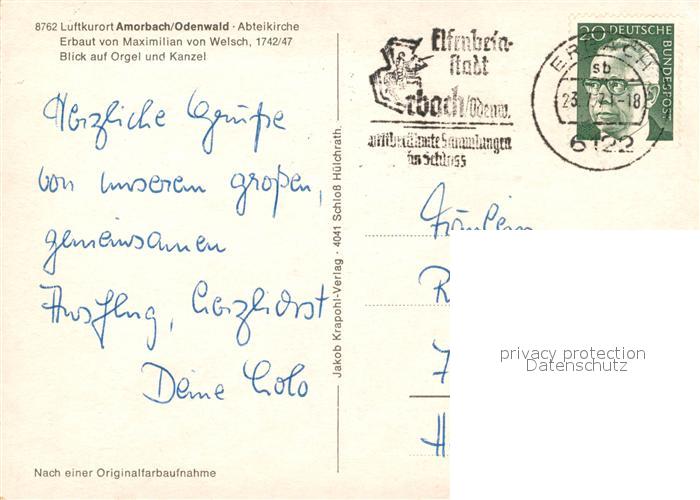 8762 Luftkurort Amorbach/Odenwald · Abteikirche
Erbaut von Maximilian von Welsch, 1742/47
Blick auf Orgel und Kanzel
Herzliche Grüße
von unserem großen,
gemeinsamen
Ausflug, herzlichst
Deine Lolo
Nach einer Originalfarbaufnahme
Jakob Krapohl-Verlag · 4041 Schloß Hülchrath.
Elfenbein-
stadt
Erbach/Odenw.
weltberühmte Sammlungen
im Schloss
ERBACH
sb
23. -18
6122
20 DEUTSCHE
BUNDESPOST
Fräulein
R
7
H
privacy protection
Datenschutz